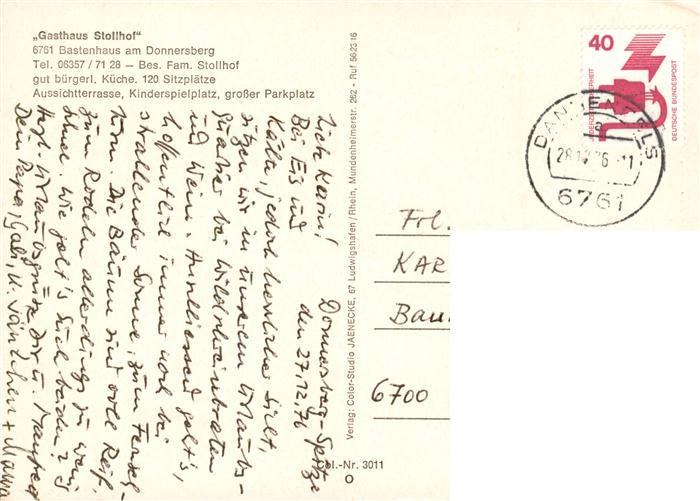 „Gasthaus Stollhof"
6761 Bastenhaus am Donnersberg
Tel. 06357 / 71 28 — Bes. Fam. Stollhof
gut bürgerl. Küche. 120 Sitzplätze
Aussichtterrasse, Kinderspielplatz, großer Parkplatz
Donnersberg-Spitze
den 27.12.76
Liebe Karin!
Bei Eis und
Kälte, jedoch herrlicher Sicht,
sitzen wir in unserem Urlaubs-
quartier bei Wildschweinbraten
und Wein. Anschliessend geht's,
hoffentlich immer noch bei
strahlender Sonne, zum Fernseh-
turm. Die Bäume sind voll Reif,
zum Rodeln allerdings zu wenig
Schnee. Wie geht's Euch beiden?
Herzl. Urlaubsgrüsse Dir u. Manfred
Dein Papa, Gabi, u. + Mama
Verlag: Color-Studio JAENECKE, 67 Ludwigshafen/Rhein, Mundenheimerstr. 262 - Ruf 56 23 16
Col.-Nr. 3011
40
JEDERZEIT SICHERHEIT
DEUTSCHE BUNDESPOST
DANNENFELS
28.12.76-11
6761
Frl.
KAR
Bau
6700